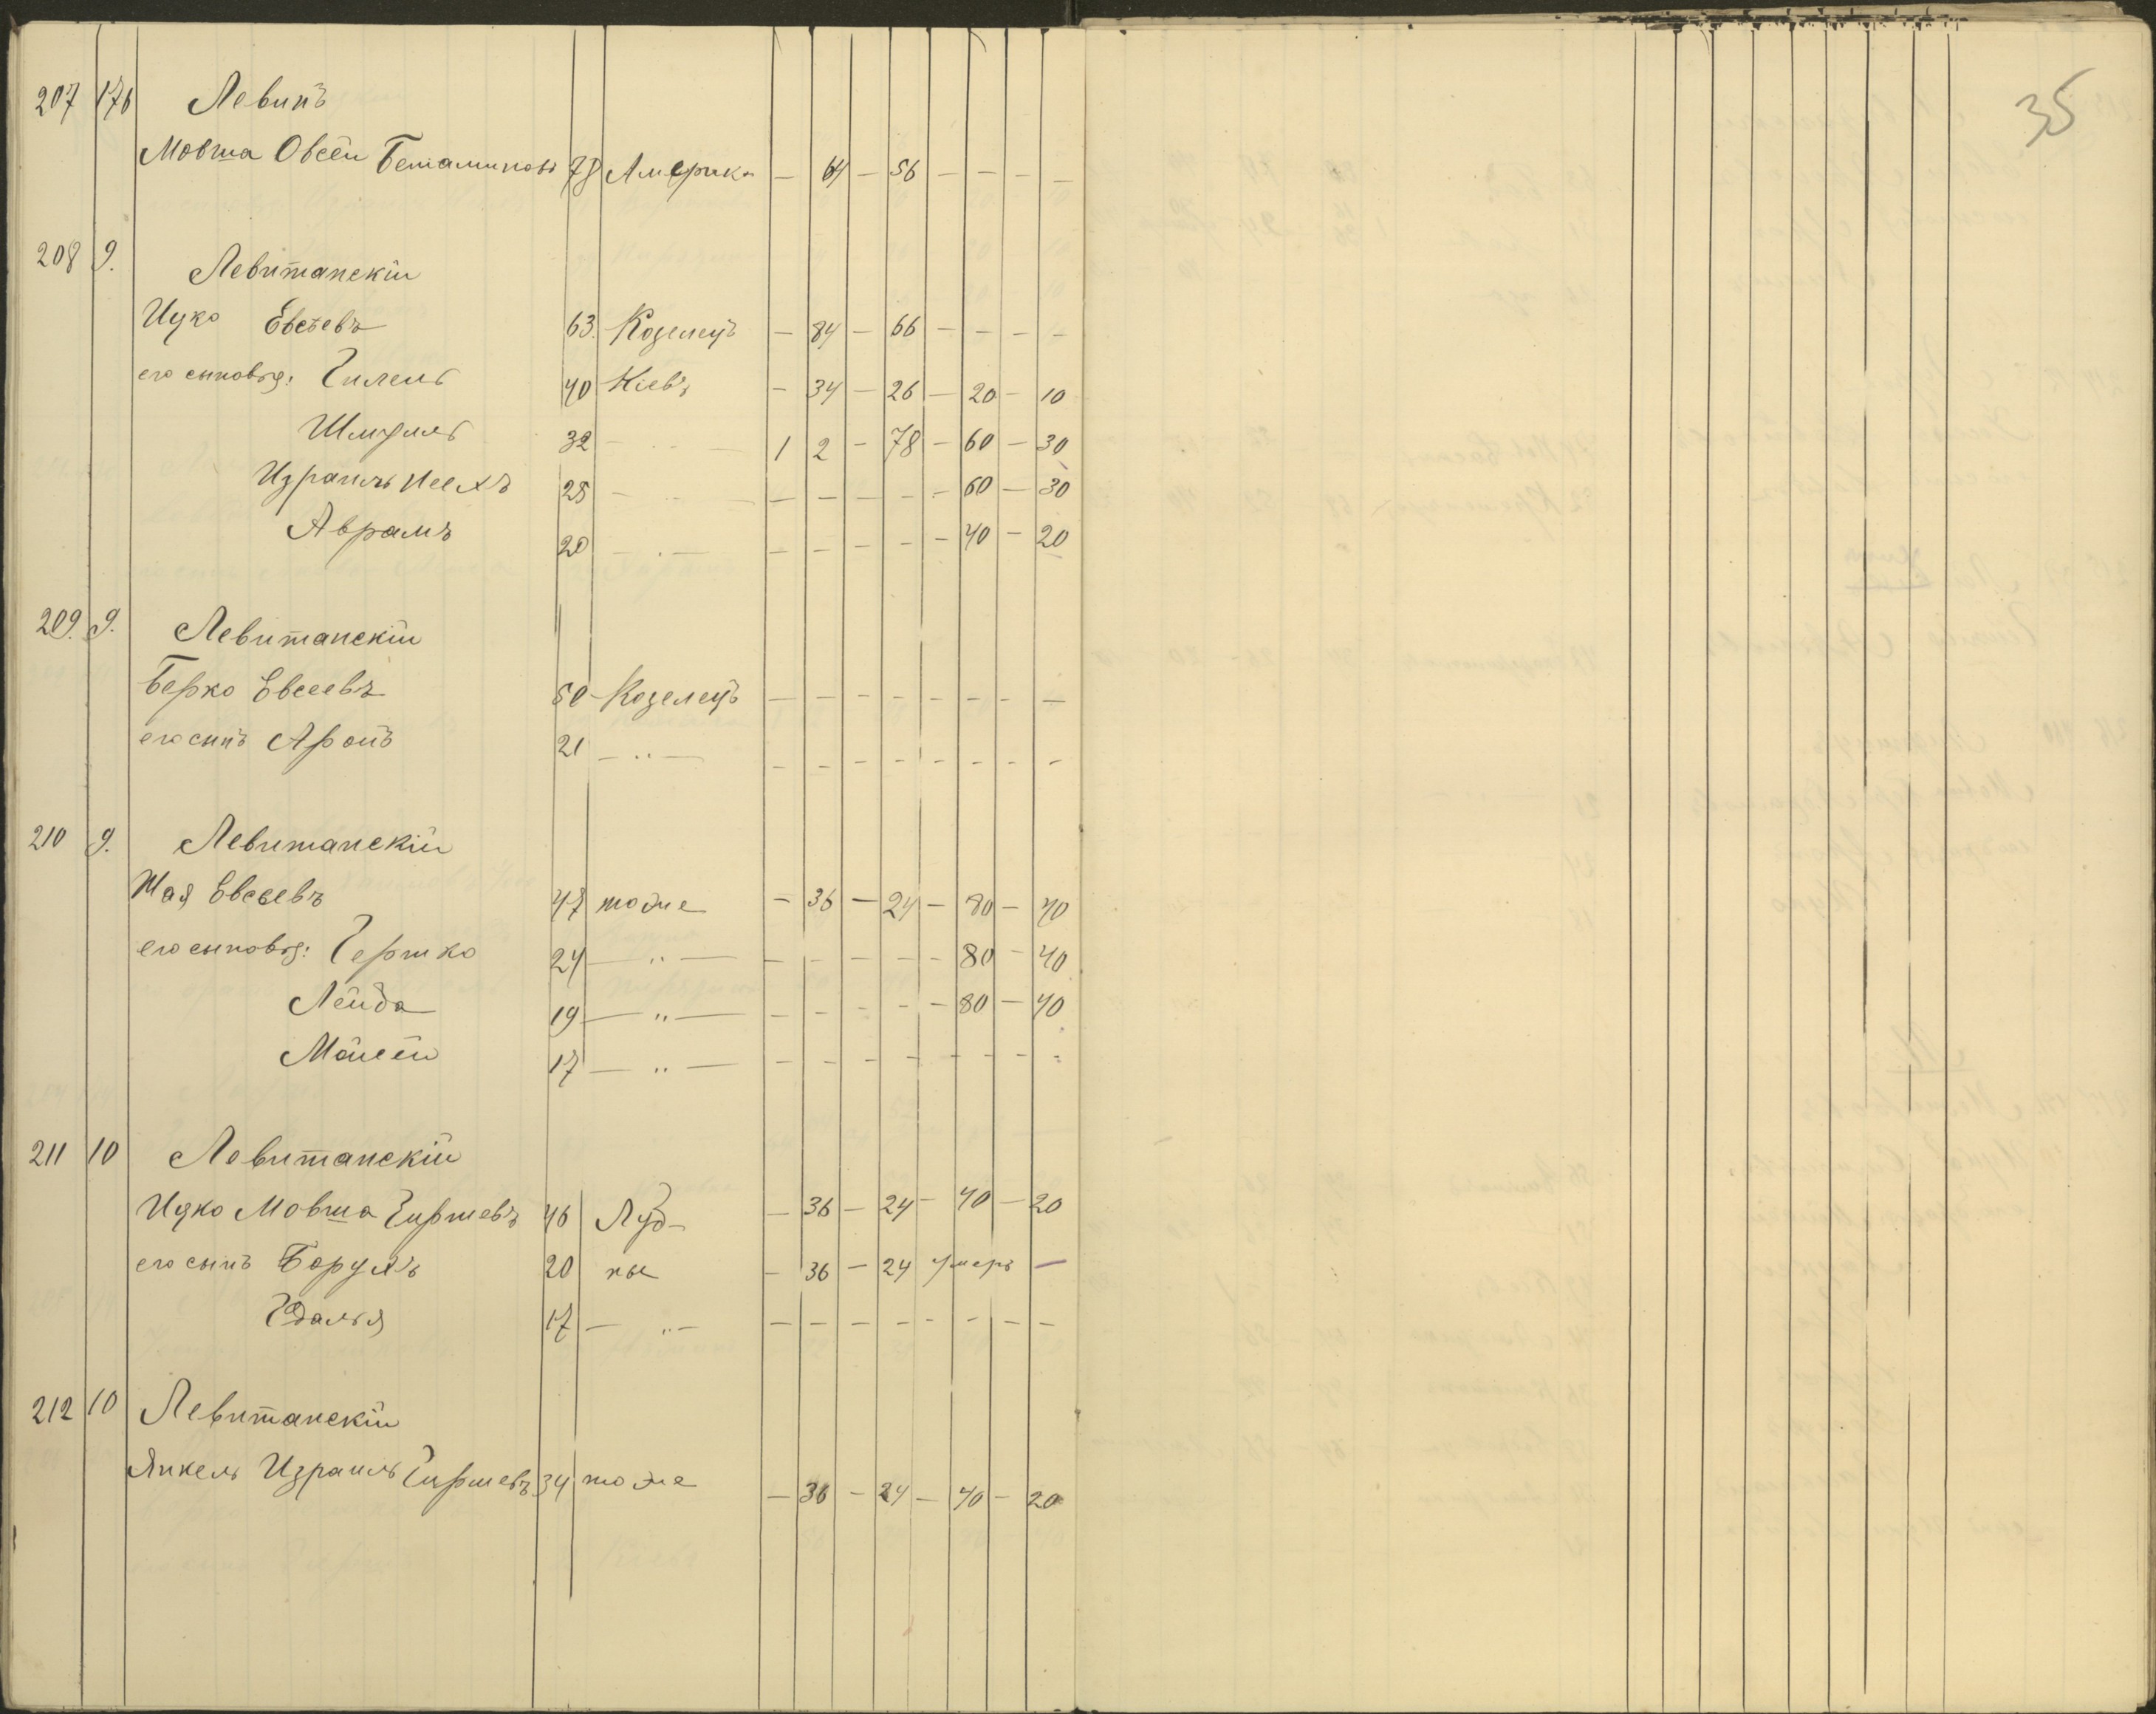 35
207 176 Левинъ
Мовша Овсей Беньаминовъ 78 Америка — 64 — 56 — — — —
208 9. Левитанскій
Ицко Евсѣевъ 63. Козелецъ — 84 — 66 — — — —
его сыновья: Гилель 40 Кіевъ — 34 — 26 — 20 — 10
Шмуиль 32 — „ — 1 2 — 78 — 60 — 30
Израиль Нехъ 28 — „ — — — — — — 60 — 30
Аврамъ 20 — „ — — — — — — 40 — 20
209. 9. Левитанскій
Берко Евсеевъ 50 Козелецъ — — — — — — — —
его сынъ Аронъ 21 — „ — — — — — — — — —
210 9. Левитанскій
Шая Евсеевъ 47 тоже — 36 — 24 — 80 — 40
его сыновья: Гершко 24 — „ — — — — — — 80 — 40
Лейба 19 — „ — — — — — — 80 — 40
Мойсей 17 — „ — — — — — — — — —
211 10 Левитанскій
Ицко Мовша Гиршевъ 46 Луб- — 36 — 24 — 40 — 20
его сынъ Борухъ 20 ны — 36 — 24 умеръ —
Гдалья 17 — „ — — — — — — — — —
212 10 Левитанскій
Янкель Израиль Гиршевъ 34 тоже — 36 — 24 — 40 — 20